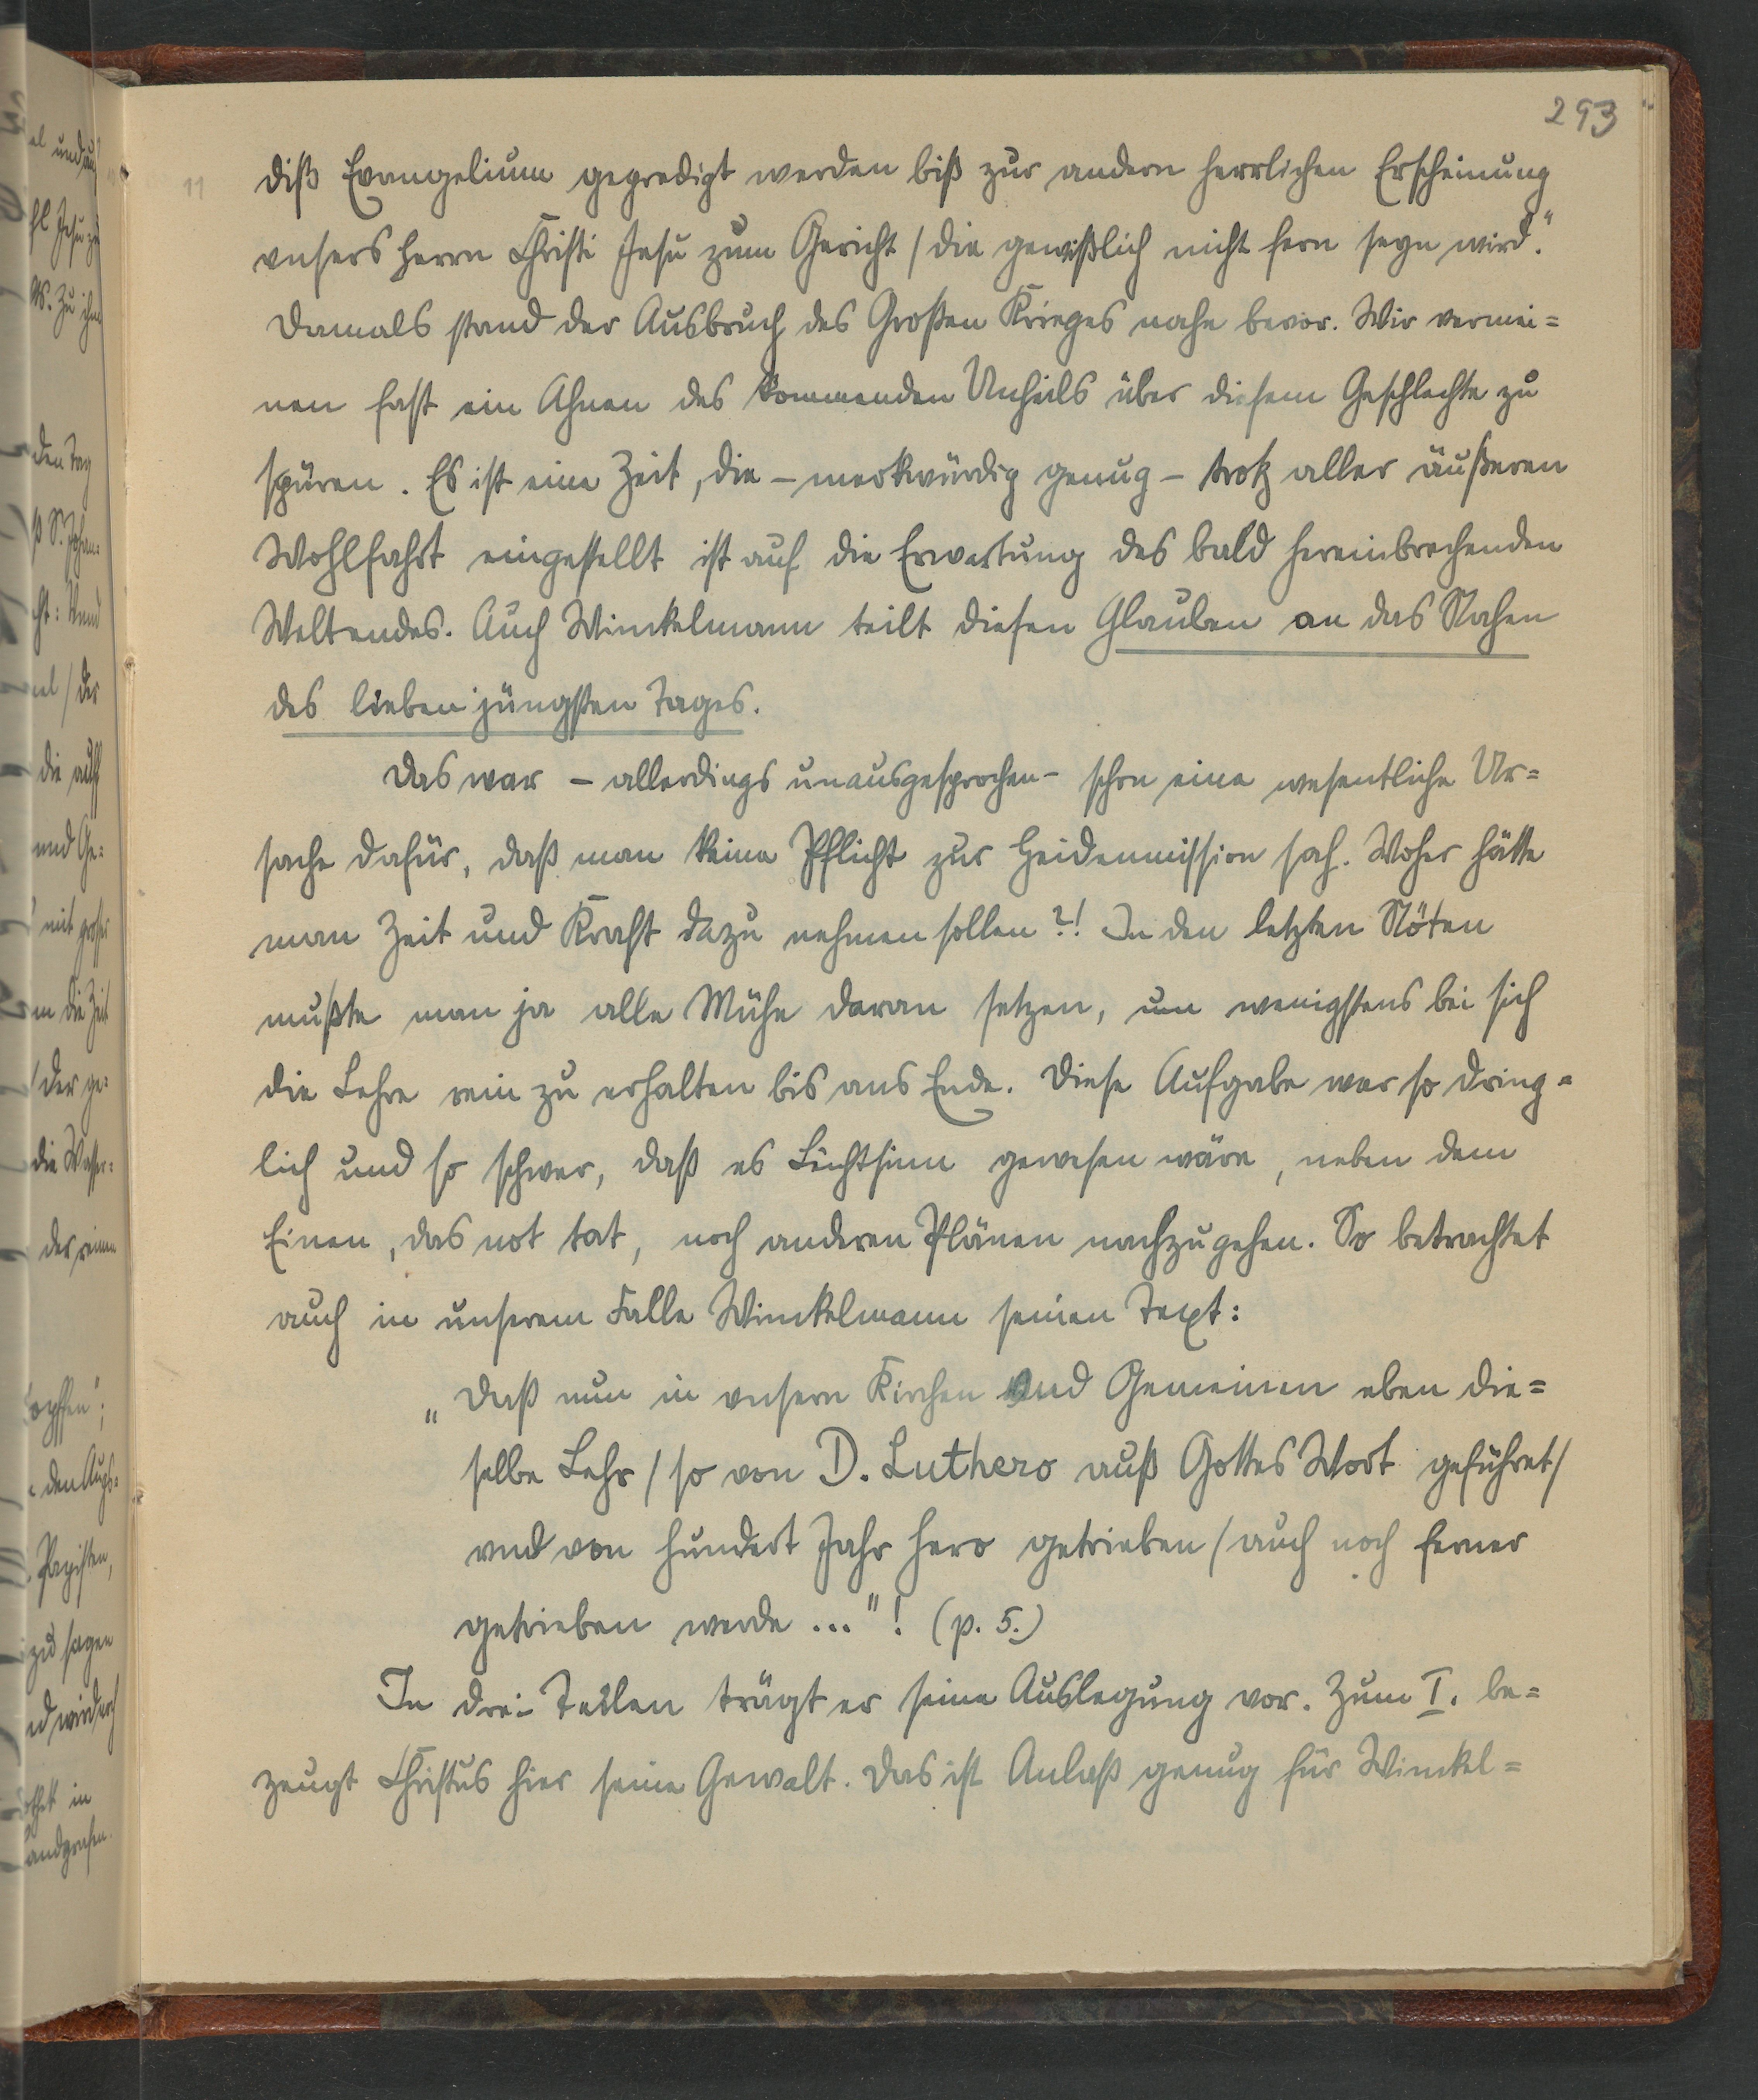 293
11 diß Evangelium gepredigt werden biß zur andern herrlichen Erscheinung
vnsers Herrn Christi Jesu zum Gericht / die gewißlich nicht fern seyn wird."
Damals stand der Ausbruch des Großen Krieges nahe bevor. Wir vermei=
nen fast ein Ahnen des kommenden Unheils über diesem Geschlechte zu
spüren. Es ist eine Zeit, die – merkwürdig genug – trotz aller äußeren
Wohlfahrt eingestellt ist auf die Erwartung des bald hereinbrechenden
Weltendes. Auch Winckelmann teilt diesen Glauben an das Nahen
des lieben jüngsten Tages.
Das war – allerdings unausgesprochen – schon eine wesentliche Ur=
sache dafür, daß man keine Pflicht zur Heidenmission sah. Woher hätte
man Zeit und Kraft dazu nehmen sollen?! In den letzten Nöten
mußte man ja alle Mühe daran setzen, um wenigstens bei sich
die Lehre rein zu erhalten bis ans Ende. Diese Aufgabe war so dring=
lich und so schwer, daß es Leichtsinn gewesen wäre, neben dem
Einen, das not tat, noch anderen Plänen nachzugehen. So betrachtet
auch in unserem Falle Winckelmann seinen Text:
„Daß nun in vnsern Kirchen vnd Gemeinen eben die=
selbe Lehr / so von D. Luthero auß Gottes Wort geführet /
vnd von hundert Jahr hero getrieben / auch noch ferner
getrieben werde ..."! (p. 5.)
In drei Teilen trägt er seine Auslegung vor. Zum I. be=
zeugt Christus hier seine Gewalt. Das ist Anlaß genug für Winckel=